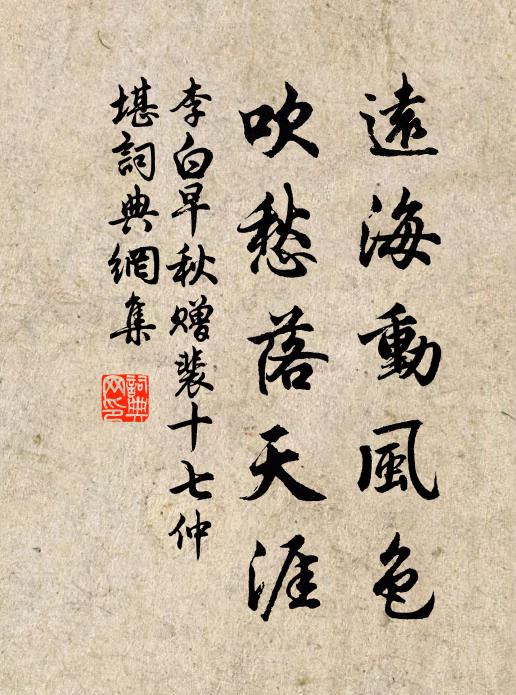 遠海動風色
吹愁落天涯
李白早秋贈裴十七仲
堪詞典網集
詞典
网印